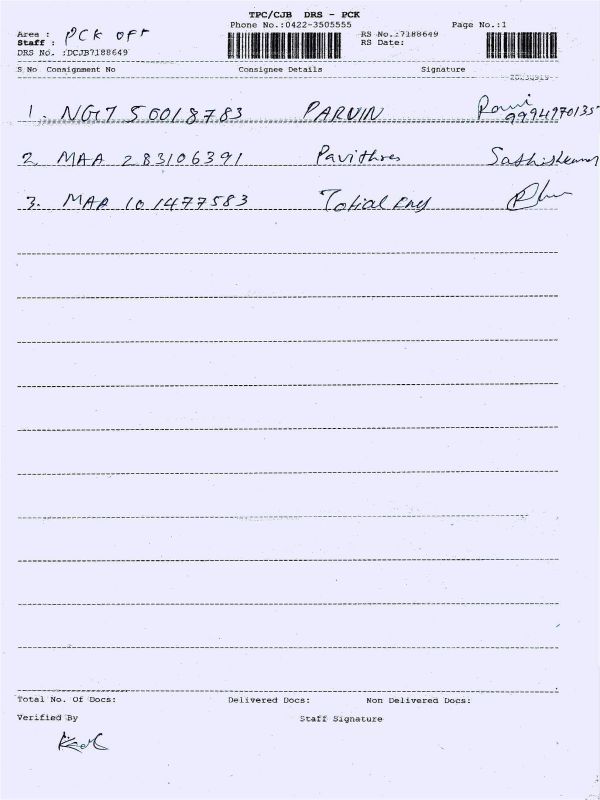 TPC/CJB DRS - PCK
Phone No.:0422-3505555 Page No.:1
Area : PCK OFF RS No.:7188649
Staff : RS Date:
DRS No. :DCJB7188649
S No Consignment No Consignee Details Signature
1. NGT 50018783 PARVIN Ravi
9994970135
2. MAA 283106391 Pavithra Sathishkumar
3. MAP 101477583 Total Eng
Total No. Of Docs: Delivered Docs: Non Delivered Docs:
Verified By Staff Signature